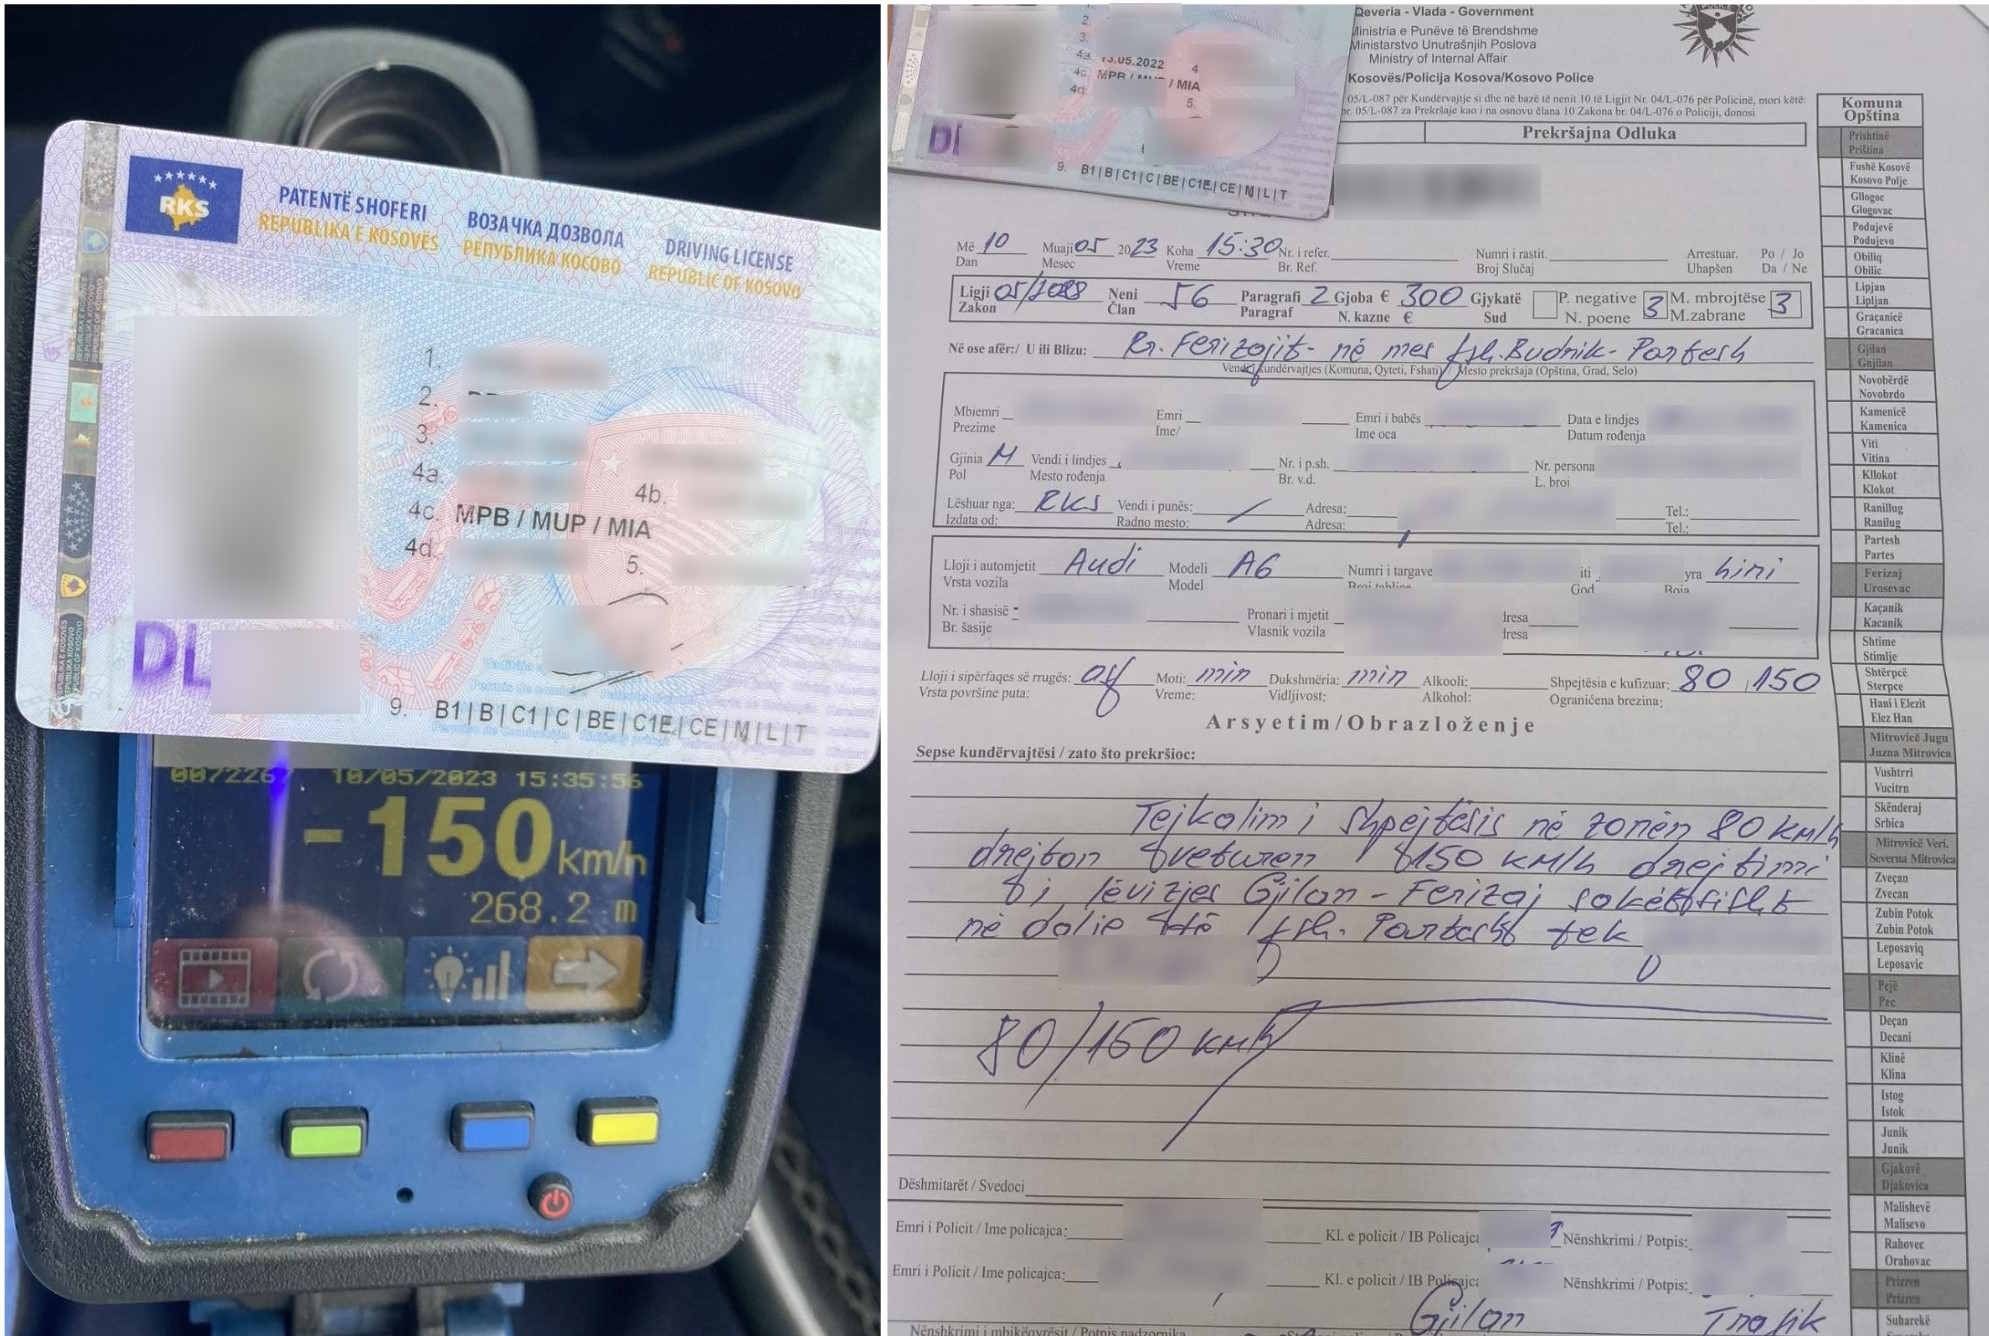 RKS
PATENTË SHOFERI
REPUBLIKA E KOSOVËS
ВОЗАЧКА ДОЗВОЛА
РЕПУБЛИКА КОСОВО
DRIVING LICENSE
REPUBLIC OF KOSOVO
1.
2.
3.
4a.
4b.
4c. MPB / MUP / MIA
4d.
5.
DL
9. B1|B|C1|C|BE|C1E|CE|M|L|T
007226 10/05/2023 15:35:56
-150 km/h
268.2 m
13.05.2022
4c. MPB / MUP / MIA
4d.
5.
9. B1|B|C1|C|BE|C1E|CE|M|L|T
Qeveria - Vlada - Government
Ministria e Punëve të Brendshme
Ministarstvo Unutrašnjih Poslova
Ministry of Internal Affair
Kosovës/Policija Kosova/Kosovo Police
05/L-087 për Kundërvajtje si dhe në bazë të nenit 10 të Ligjit Nr. 04/L-076 për Policinë, mori këtë:
br. 05/L-087 za Prekršaje kao i na osnovu člana 10 Zakona br. 04/L-076 o Policiji, donosi
Prekršajna Odluka
Më 10 Muaji 05 2023 Koha 15:30 Nr. i refer. Numri i rastit. Arrestuar. Po / Jo
Dan Mesec Vreme Br. Ref. Broj Slučaj Uhapšen Da / Ne
Ligji 05/ Neni 56 Paragrafi 2 Gjoba € 300 Gjykatë P. negative 3 M. mbrojtëse 3
Zakon Član Paragraf N. kazne € Sud N. poene M.zabrane
Në ose afër:/ U ili Blizu: Rr. Ferizajit - në mes fsh. Budrik - Partesh
Vendi i kundërvajtjes (Komuna, Qyteti, Fshati) / Mesto prekršaja (Opština, Grad, Selo)
Mbiemri Emri Emri i babës Data e lindjes
Prezime Ime/ Ime oca Datum rođenja
Gjinia M Vendi i lindjes Nr. i p.sh. Nr. persona
Pol Mesto rođenja Br. v.d. L. broj
Lëshuar nga: RKS Vendi i punës: / Adresa: Tel.:
Izdata od: Radno mesto: Adresa: Tel.:
Lloji i automjetit Audi Modeli A6 Numri i targave iti yra hiri
Vrsta vozila Model Broj tabline God Boja
Nr. i shasisë Pronari i mjetit dresa
Br. šasije Vlasnik vozila dresa
Lloji i sipërfaqes së rrugës: asf Moti: mirë Dukshmëria: mirë Alkooli: Shpejtësia e kufizuar: 80, 150
Vrsta površine puta: Vreme: Vidljivost: Alkohol: Ograničena brezina:
Arsyetim/Obrazloženje
Sepse kundërvajtësi / zato što prekršioc:
Tejkalim i shpejtësis në zonën 80 km/h
drejton veturen 150 km/h drejtimi
i lëvizjes Gjilan - Ferizaj
në dalje të fsh. Partesh tek
80/150 km/h
Dëshmitarët / Svedoci
Emri i Policit / Ime policajca: Kl. e policit / IB Policajca Nënshkrimi / Potpis:
Emri i Policit / Ime policajca: Kl. e policit / IB Policajca Nënshkrimi / Potpis:
Gjilan Trafik
Nënshkrimi i mbikëqyrësit / Potpis nadzornika
Komuna
Opština
Prishtinë
Priština
Fushë Kosovë
Kosovo Polje
Gllogoc
Glogovac
Podujevë
Podujevo
Obiliq
Obilic
Lipjan
Lipljan
Graçanicë
Gracanica
Gjilan
Gnjilan
Novobërdë
Novobrdo
Kamenicë
Kamenica
Viti
Vitina
Kllokot
Klokot
Ranillug
Ranilug
Partesh
Partes
Ferizaj
Urosevac
Kaçanik
Kacanik
Shtime
Stimlje
Shtërpcë
Sterpce
Hani i Elezit
Elez Han
Mitrovicë Jugu
Juzna Mitrovica
Vushtrri
Vucitrn
Skënderaj
Srbica
Mitrovicë Veri.
Severna Mitrovica
Zveçan
Zvecan
Zubin Potok
Zubin Potok
Leposaviq
Leposavic
Pejë
Pec
Deçan
Decani
Klinë
Klina
Istog
Istok
Junik
Junik
Gjakovë
Djakovica
Malishevë
Malisevo
Rahovec
Orahovac
Prizren
Prizren
Suharekë